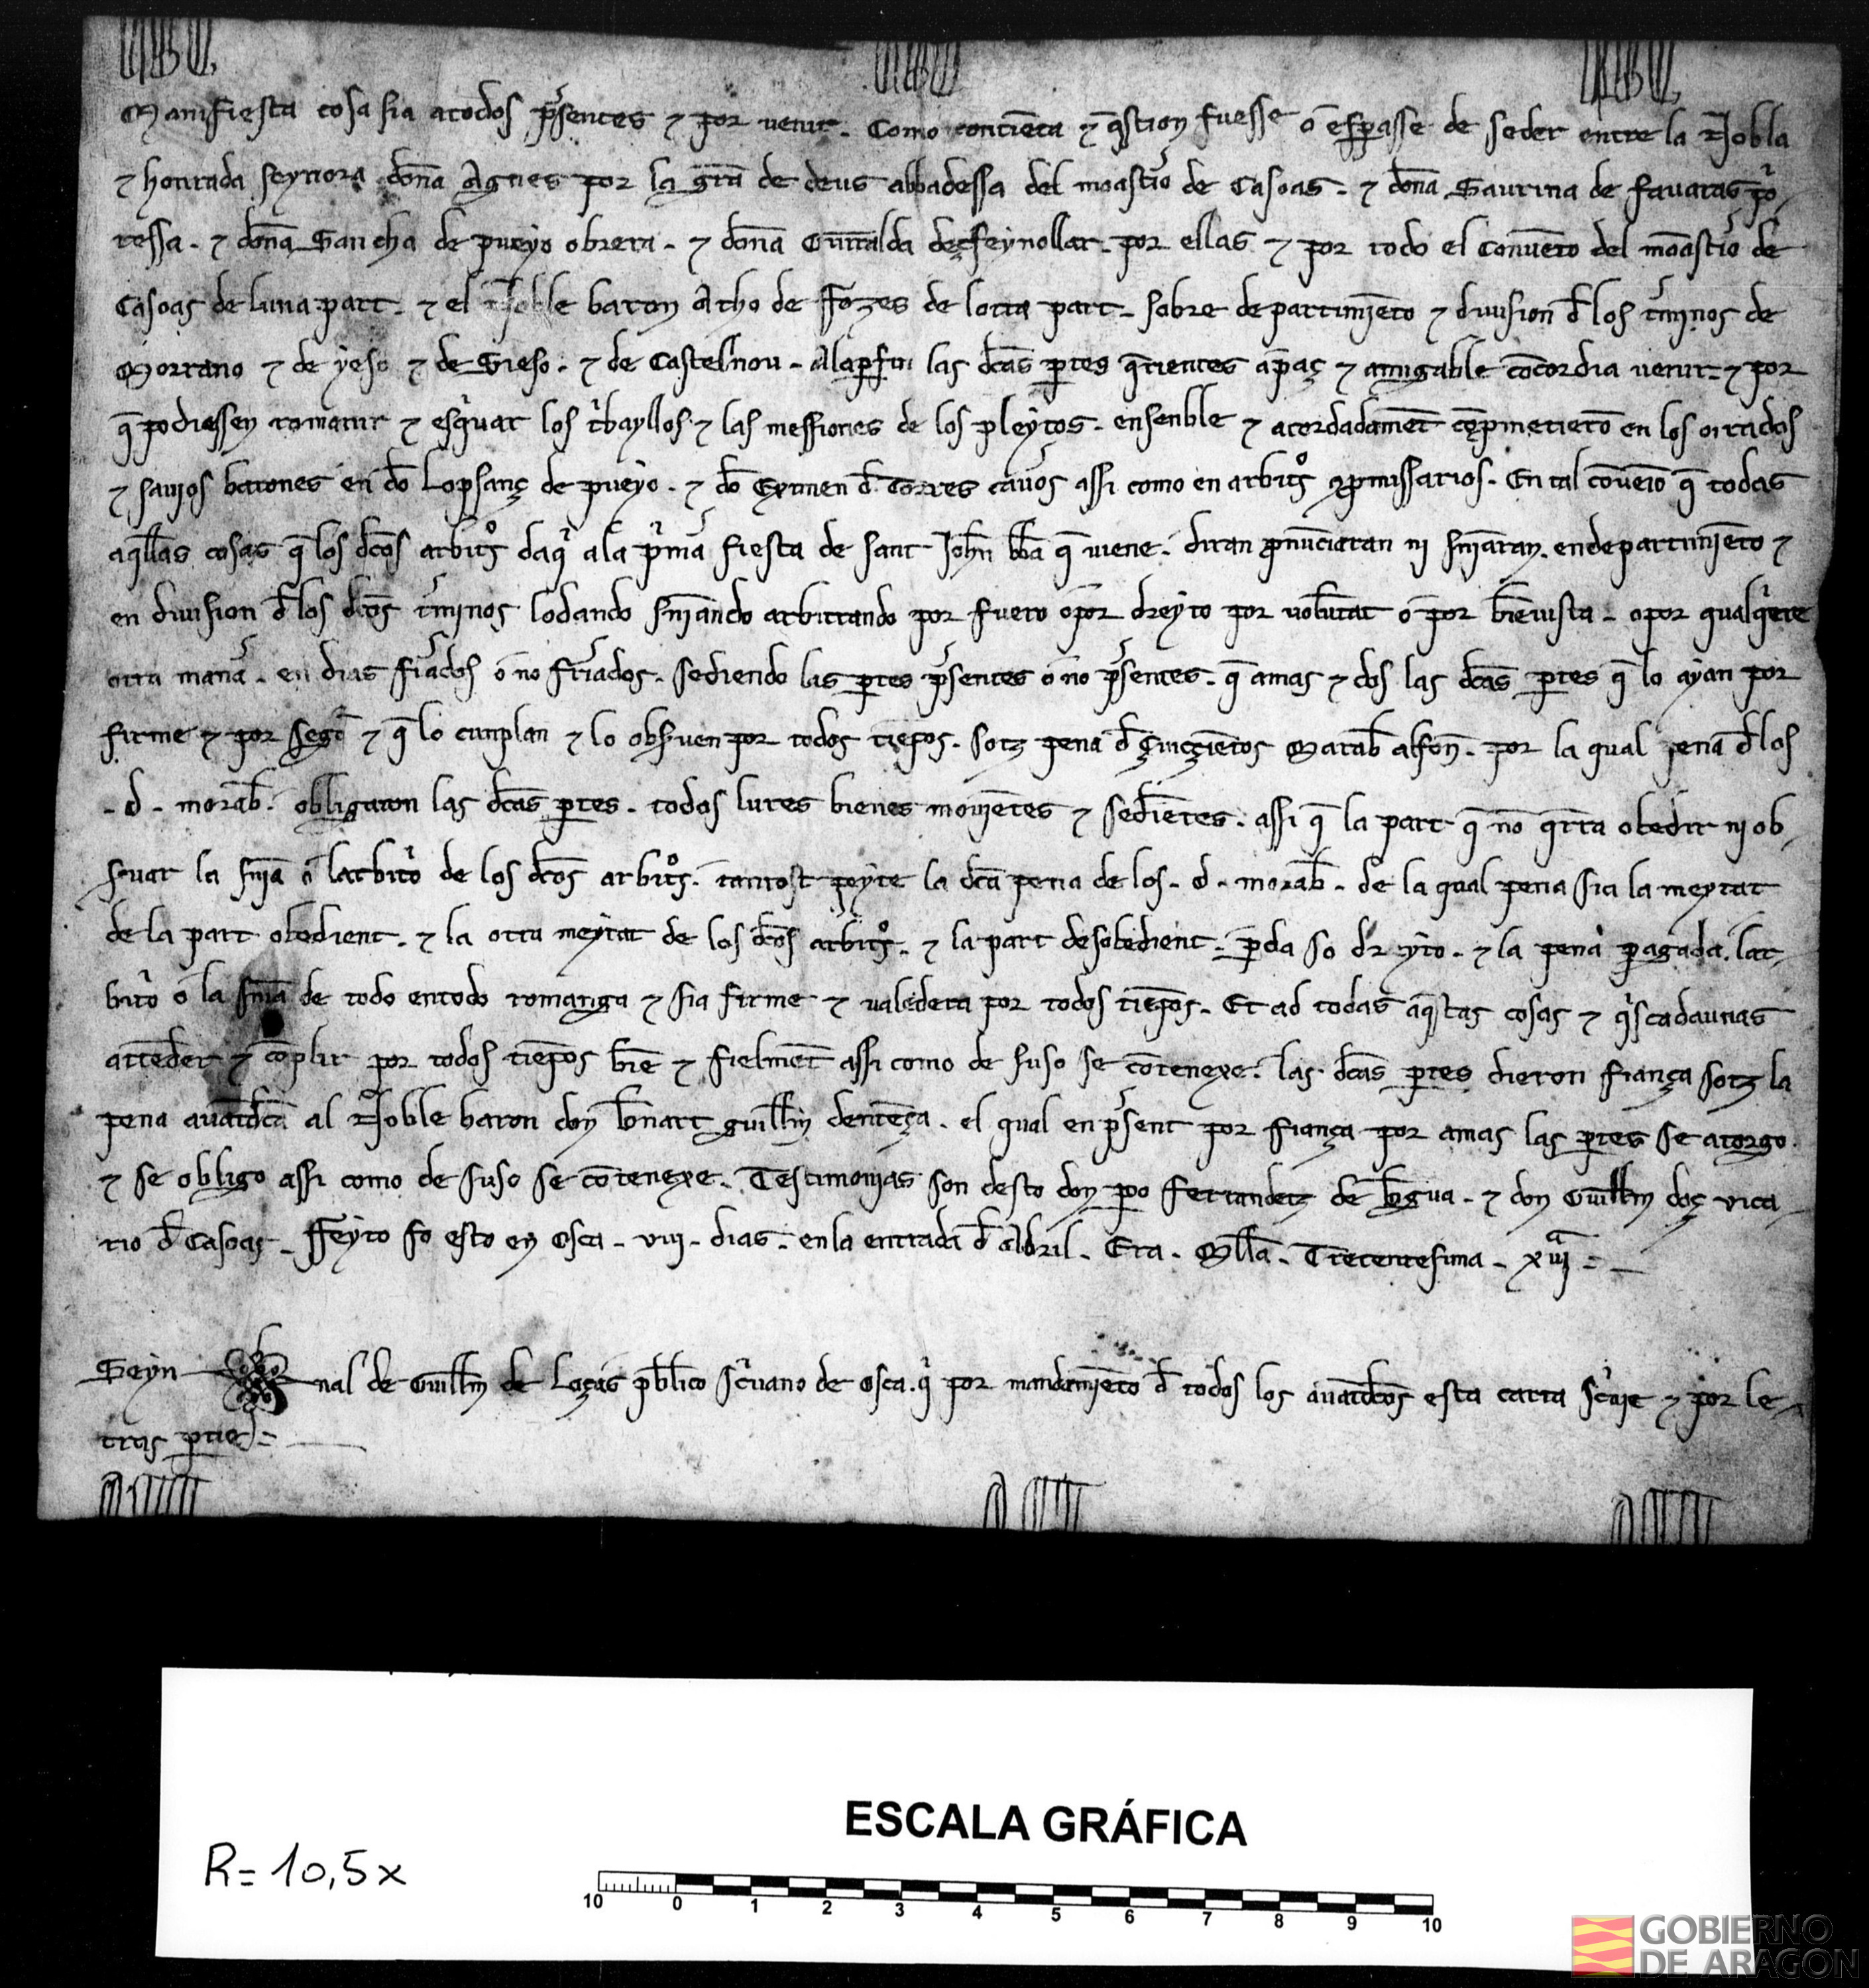 Manifiesta cosa sia a todos p̃sentes ⁊ por venir. Como contiẽta ⁊ q̃stion fuesse o esp̃asse de seder entre la Nobla
⁊ honrada seynora dona Agnes por la gr̃a de deus abbadessa del moast̃io de Casoas. ⁊ dona Saurina de favaras p̃o
ressa. ⁊ dona Sancha de pueyo obrera. ⁊ dona Guiralda deçfeynollar. por ellas ⁊ por todo el Convẽto del monast̃io de
Casoas de luna part. ⁊ el Noble baron Atho de Fozes de lotra part. sobre departimiẽto ⁊ division d̃ los t̃minos de
Morrano ⁊ de yeso ⁊ de Sieso. ⁊ de Castelnou. Ala p̃fin las dc̃as p̃tes q̃rientes a paç ⁊ amigable cõcordia venir. ⁊ por
q̃ podiessen romanir ⁊ esq̃var los t̃bayllos ⁊ las messiones de los pleytos. ensenble ⁊ acordadamẽt cõp̃metierõ en los ontrados
⁊ savios barones en dõ Lopsanç de pueyo. ⁊ dõ Eximen d̃ Torres caṽos assi como en arbit̃s ꝯp̃missarios. En tal cõveiõ q̃ todas
aq̃llas cosas q̃ los dc̃os arbit̃s daq̃ a la p̃m̃a fiesta de sant Joh̃n bb̃a q̃ viene. diran p̃nũciaran ni sñiaran. en departimiẽto ⁊
en division d̃ los dc̃os t̃minos lodando sñiando arbitrando por fuero o por dreyto por volũtat o por biẽvista. o por qualq̃ere
otra man̄a. en dias f̃iados o no f̃iados. Sediendo las p̃tes p̃sentes o no p̃sentes. q̃ amas ⁊ dos las dc̃as p̃tes q̃ lo ayan por
firme ⁊ por seg̃o ⁊ q̃ lo cunplan ⁊ lo obs̃uen por todos tiẽpos. Sotz pena d̃ Çinçiẽtos Marab̃ alfoñ. por la qual pena d̃ los
. d . morab̃. obligaron las dc̃as p̃tes. todos lures bienes moviẽtes ⁊ sediẽtes. assi q̃ la part q̃ no q̃rra obedir ni ob
s̃uar la sñia o larbit̃o de los dc̃os arbit̃s. tantost peyte la dc̃a pena de los . d . morab̃. de la qual pena sia la meytat
de la part obedient. ⁊ la otra meytat de los dc̃os arbit̃s. ⁊ la part desobedient. p̃da so dreyto. ⁊ la pena pagada. lar
bit̃o o la sñia de todo en todo romanga ⁊ sia firme ⁊ valedera por todos tiẽpos. Et ad todas aq̃stas cosas ⁊ q̃scadaunas
attẽder ⁊ cõplir por todos tiẽpos biẽ ⁊ fielmẽt assi como de suso se cõtenexe. las dc̃as p̃tes dieron fiança sotz la
pena avãtdc̃a al Noble baron don b̃nart guill̃m dentẽça. el qual en p̃sent por fiança por amas las p̃tes se atorgo.
⁊ se obligo assi como de suso se cõtenexe. Testimonias son desto don p̃o Ferrandetz de b̃gua. ⁊ don Guill̃m doç vica
rio d̃ Casoas. Feyto fo esto en Osca. viii. dias. en la entrada d̃ Abril. Era. Mill̃a. Trecentesima. xiiiᵃ
Seyn nal de Guill̃m de Loças pb̃lico sc̃vano de Osca. q̃ por mandamiẽto d̃ todos los avãtdc̃os esta carta sc̃vie ⁊ por le
tras p̃tie
ESCALA GRÁFICA
R= 10,5x
10 0 1 2 3 4 5 6 7 8 9 10
GOBIERNO
DE ARAGON